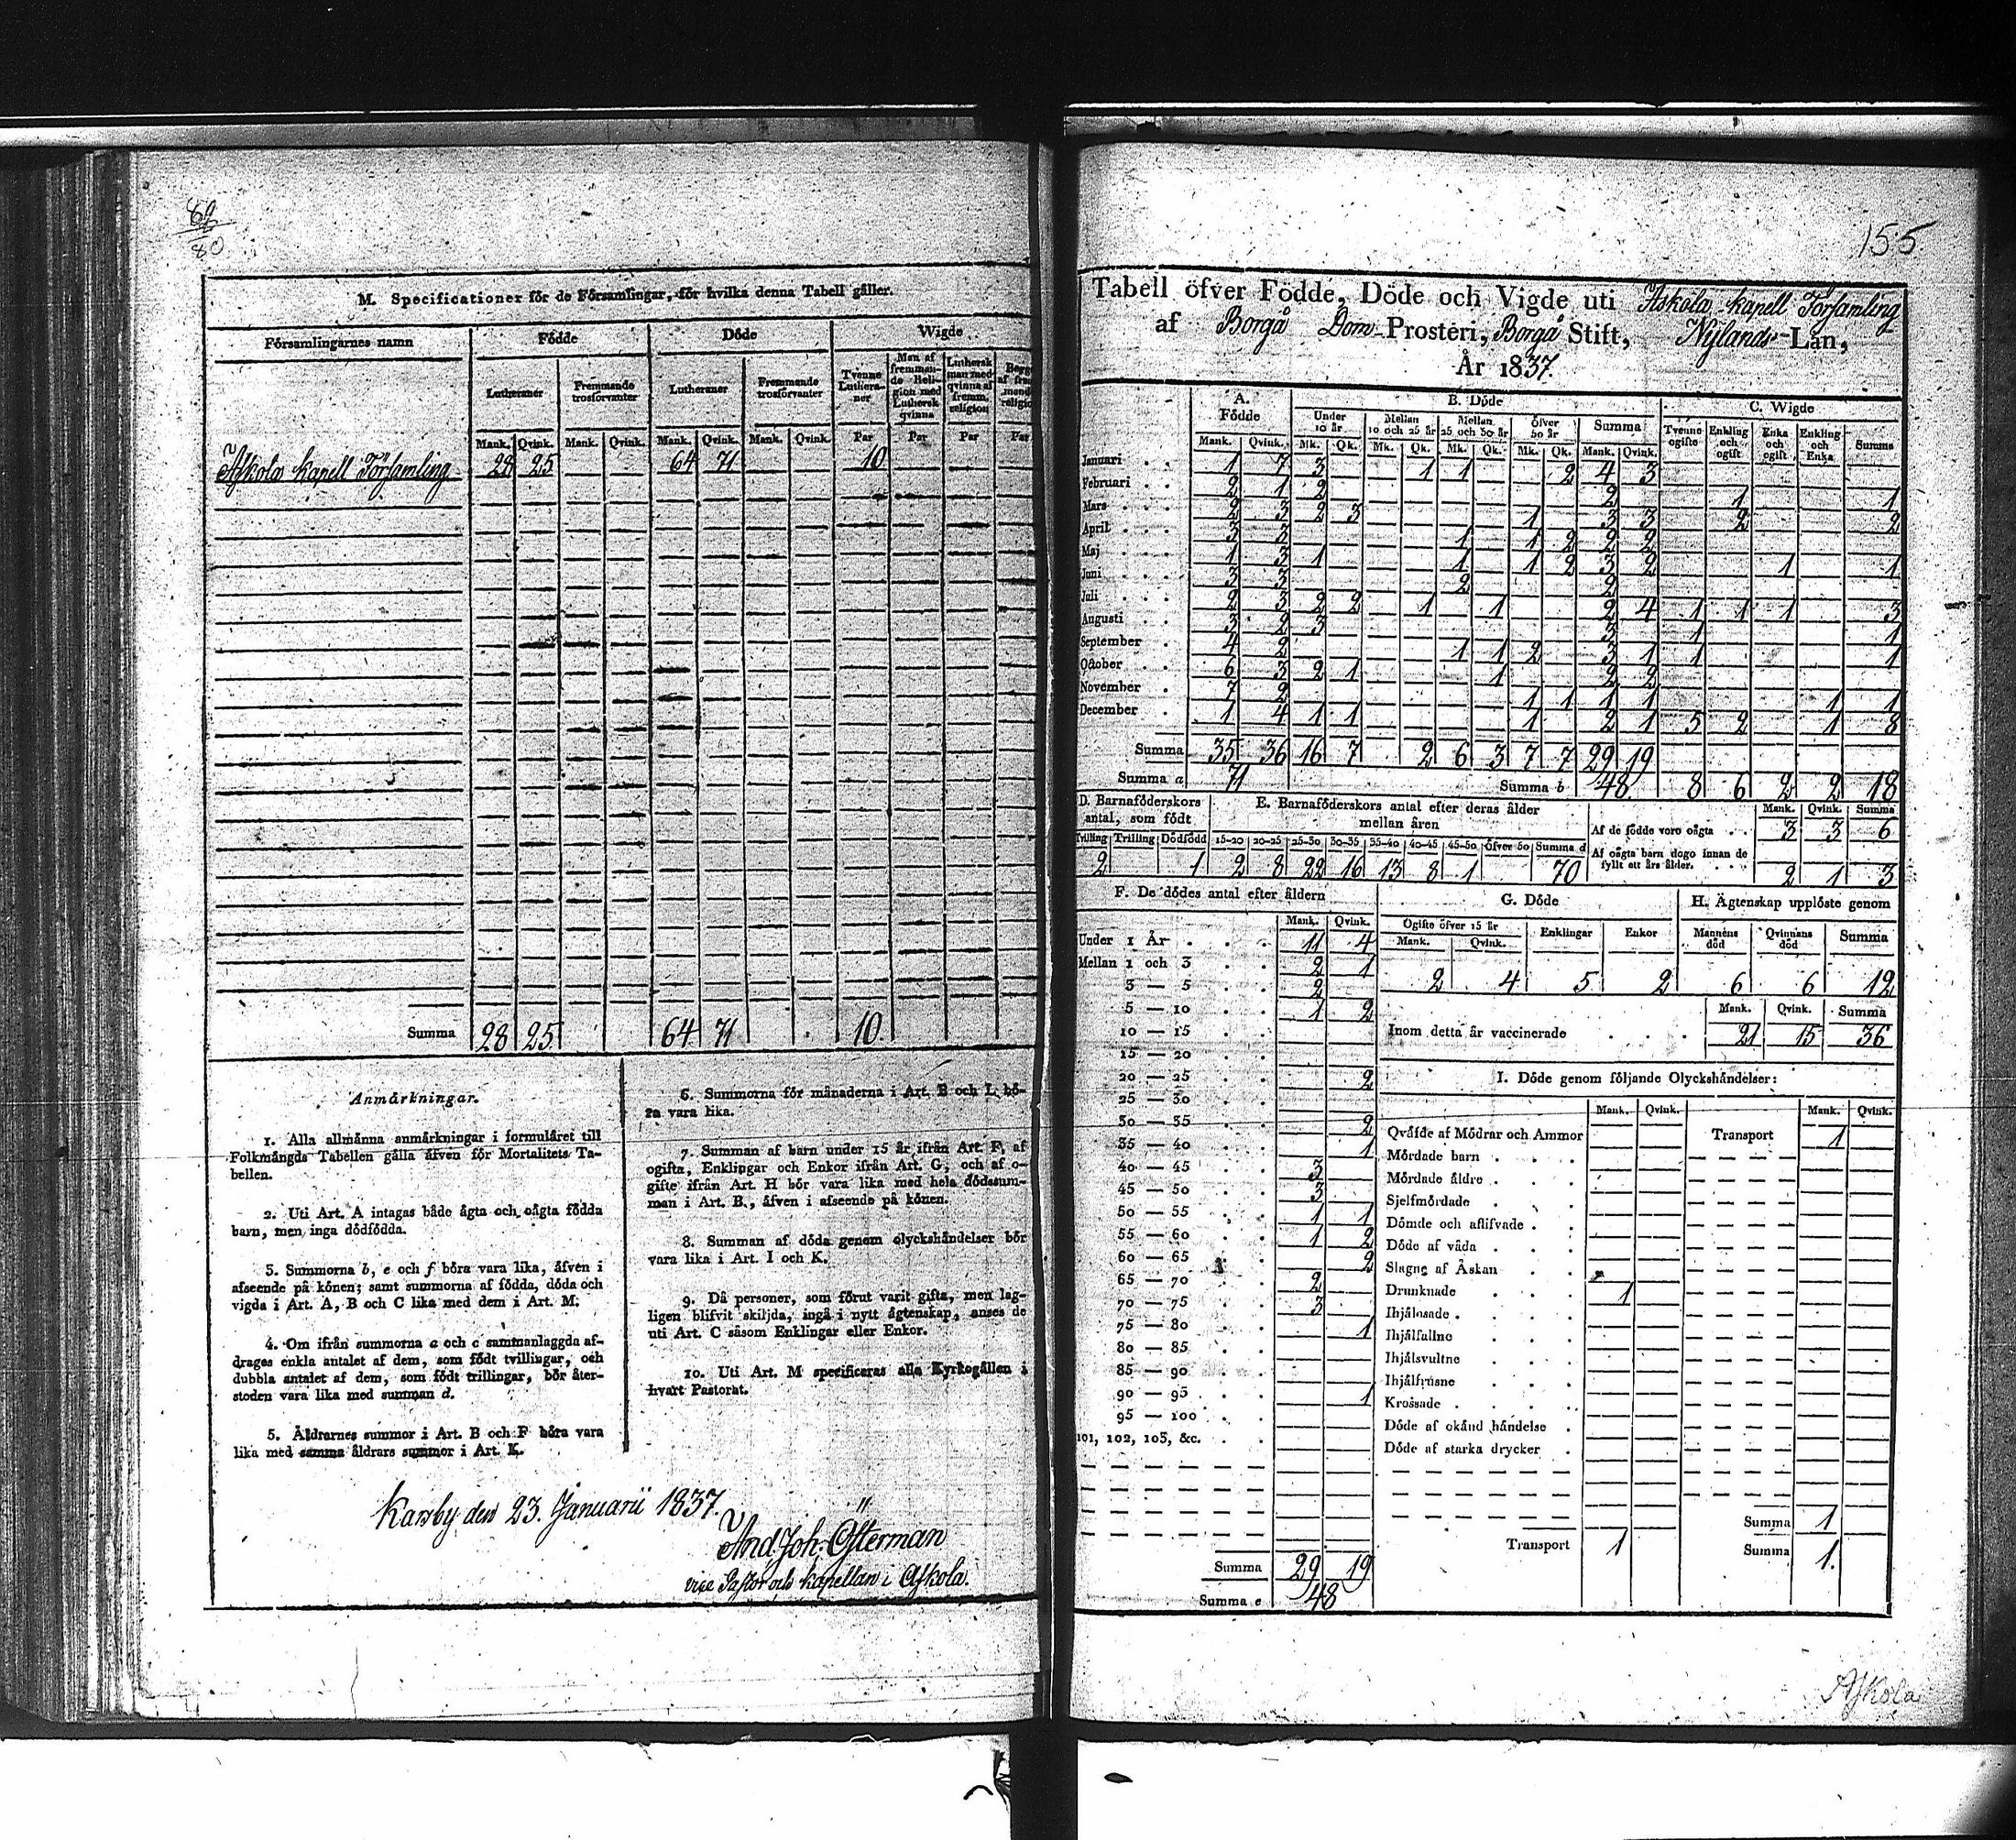 80
M. Specificationer för de Församlingar, för hvilka denna Tabell gäller.
Församlingarnes namn | Födde | Döde | Wigde
Lutheraner | Fremmande trosförvanter | Lutheraner | Fremmande trosförvanter | Tvenne Lutheraner | Man af fremmande Religion med Luthersk qvinna | Luthersk man med qvinna af fremm. religion
Mank. | Qvink. | Mank. | Qvink. | Mank. | Qvink. | Mank. | Qvink. | Par | Par | Par | Par
Askola kapell Församling | 28 | 25 | 64 | 71 | 10
Summa | 28 | 25 | 64 | 71 | 10
Anmärkningar.
1. Alla allmänna anmärkningar i formuläret till
Folkmängds Tabellen gälla äfven för Mortalitets Ta-
bellen.
2. Uti Art. A intagas både ägta och oägta födda
barn, men inga dödfödda.
3. Summorna b, e och f böra vara lika, äfven i
afseende på könen; samt summorna af födda, döda och
vigda i Art. A, B och C lika med dem i Art. M.
4. Om ifrån summorna a och c sammanlaggda af-
drages enkla antalet af dem, som födt tvillingar, och
dubbla antalet af dem, som födt trillingar, bör åter-
stoden vara lika med summan d.
5. Åldrarnes summor i Art. B och F böra vara
lika med samma åldrars summor i Art. K.
6. Summorna för månaderna i Art. B och L bö-
ra vara lika.
7. Summan af barn under 15 år ifrån Art. F, af
ogifta, Enklingar och Enkor ifrån Art. G, och af o-
gifte ifrån Art. H bör vara lika med hela dödssum-
man i Art. B., äfven i afseende på könen.
8. Summan af döda genom olyckshändelser bör
vara lika i Art. I och K.
9. Då personer, som förut varit gifta, men lag-
ligen blifvit skiljda, ingå i nytt ägtenskap, anses de
uti Art. C såsom Enklingar eller Enkor.
10. Uti Art. M specificeras alla Kyrkogällen i
hvart Pastorat.
Karsby den 23. Januarii 1837.
And. Joh. Österman
vice Pastor och kapellan i Askola.
155
Tabell öfver Födde, Döde och Vigde uti Askola kapell Församling
af Borgå Dom-Prosteri, Borgå Stift, Nylands-Län,
År 1837.
A. Födde | B. Döde | C. Wigde
Under 10 år | Mellan 10 och 25 år | Mellan 25 och 50 år | Öfver 50 år | Summa | Tvenne ogifte | Enkling och ogift | Enka och ogift | Enkling och Enka | Summa
Mank. | Qvink. | Mk. | Qk. | Mk. | Qk. | Mk. | Qk. | Mk. | Qk. | Mank. | Qvink.
Januari | 1 | 7 | 3 | 1 | 1 | 2 | 4 | 3
Februari | 2 | 1 | 2 | 2 | 1 | 1
Mars | 2 | 3 | 2 | 3 | 1 | 3 | 3 | 2 | 2
April | 3 | 3 | 1 | 1 | 2 | 2 | 2
Maj | 1 | 3 | 1 | 1 | 1 | 2 | 3 | 2 | 1 | 1
Juni | 3 | 3 | 2 | 2
Juli | 2 | 3 | 2 | 2 | 1 | 1 | 2 | 4 | 1 | 1 | 1 | 3
Augusti | 3 | 2 | 3 | 3 | 1 | 1
September | 4 | 2 | 1 | 1 | 2 | 3 | 1 | 1 | 1
October | 6 | 3 | 2 | 1 | 1 | 2 | 2
November | 7 | 2 | 1 | 1 | 1 | 1 | 1 | 1
December | 1 | 4 | 1 | 1 | 1 | 2 | 1 | 5 | 2 | 1 | 8
Summa | 35 | 36 | 16 | 7 | 2 | 6 | 3 | 7 | 7 | 29 | 19
Summa a | 71 | Summa b | 48 | 8 | 6 | 2 | 2 | 18
D. Barnaföderskors antal, som födt
Tvilling | Trilling | Dödfödd
2 | 1
E. Barnaföderskors antal efter deras ålder mellan åren
15-20 | 20-25 | 25-30 | 30-35 | 35-40 | 40-45 | 45-50 | Öfver 50 | Summa d
2 | 8 | 22 | 16 | 13 | 8 | 1 | 70
Mank. | Qvink. | Summa
Af de födde voro oägta | 3 | 3 | 6
Af oägta barn dogo innan de fyllt ett års ålder. | 2 | 1 | 3
F. De dödes antal efter åldern
Mank. | Qvink.
Under 1 År | 11 | 4
Mellan 1 och 3 | 2 | 1
3 — 5 | 2
5 — 10 | 1 | 2
10 — 15
15 — 20
20 — 25 | 2
25 — 30
30 — 35 | 2
35 — 40 | 1
40 — 45 | 3
45 — 50 | 3
50 — 55 | 1 | 1
55 — 60 | 1 | 2
60 — 65 | 2
65 — 70 | 2
70 — 75 | 3
75 — 80 | 1
80 — 85
85 — 90
90 — 95 | 1
95 — 100
101, 102, 103, &c.
Summa | 29 | 19
Summa e | 48
G. Döde
Ogifte öfver 15 år | Enklingar | Enkor
Mank. | Qvink.
2 | 4 | 5 | 2
H. Ägtenskap upplöste genom
Mannens död | Qvinnans död | Summa
6 | 6 | 12
Mank. | Qvink. | Summa
Inom detta år vaccinerade | 21 | 15 | 36
I. Döde genom följande Olyckshändelser:
Mank. | Qvink. | Mank. | Qvink.
Qväfde af Mödrar och Ammor | Transport | 1
Mördade barn
Mördade äldre
Sjelfmördade
Dömde och aflifvade
Döde af våda
Slagne af Åskan
Drunknade | 1
Ihjälosade
Ihjälfallne
Ihjälsvultne
Ihjälfrusne
Krossade
Döde af okänd händelse
Döde af starka drycker
Summa | 1
Transport | 1 | Summa | 1.
Askola